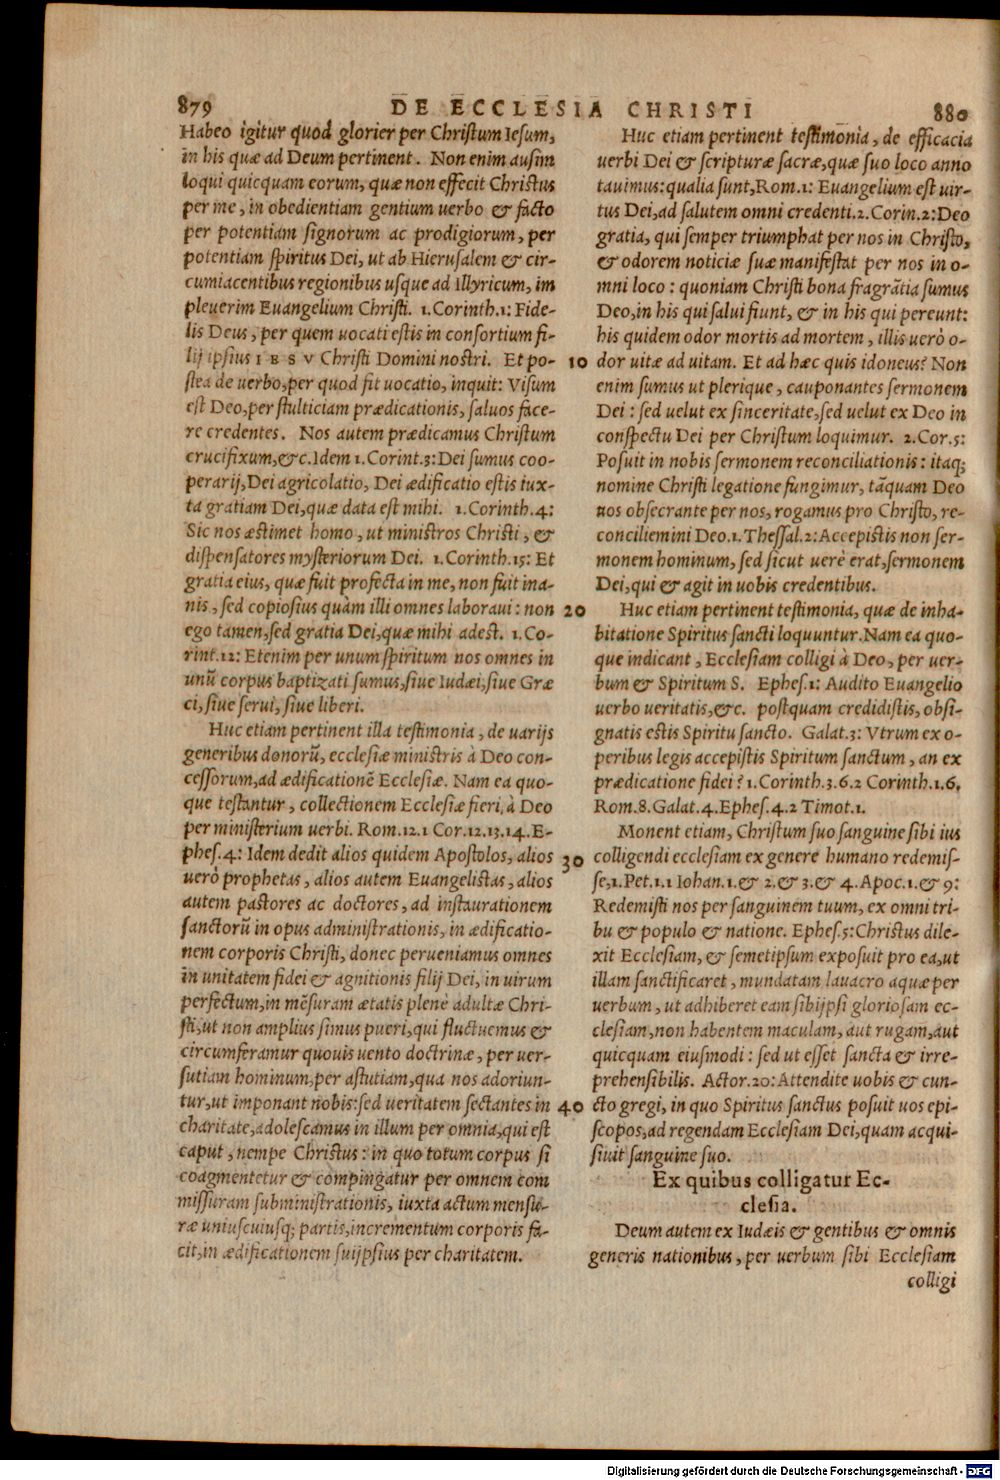 879 DE ECCLESIA CHRISTI 880
Habeo igitur quod glorier per Christum Iesum,
in his quæ ad Deum pertinent. Non enim ausim
loqui quicquam eorum, quæ non effecit Christus
per me, in obedientiam gentium uerbo & facto
per potentiam signorum ac prodigiorum, per
potentiam spiritus Dei, ut ab Hierusalem & cir-
cumiacentibus regionibus usque ad Illyricum, im
pleuerim Euangelium Christi. 1.Corinth.1: Fide-
lis Deus, per quem uocati estis in consortium fi-
lij ipsius IESV Christi Domini nostri. Et po-
stea de uerbo, per quod fit uocatio, inquit: Visum
est Deo, per stulticiam prædicationis, saluos face-
re credentes. Nos autem prædicamus Christum
crucifixum,&c. Idem 1.Corint.3: Dei sumus coo-
perarij, Dei agricolatio, Dei ædificatio estis iux-
ta gratiam Dei, quæ data est mihi. 1.Corinth.4:
Sic nos æstimet homo, ut ministros Christi, &
dispensatores mysteriorum Dei. 1.Corinth.15: Et
gratia eius, quæ fuit profecta in me, non fuit ina-
nis, sed copiosius quàm illi omnes laboraui: non
ego tamen, sed gratia Dei, quæ mihi adest. 1.Co-
rint.12: Etenim per unum spiritum nos omnes in
unũ corpus baptizati sumus, siue Iudæi, siue Græ
ci, siue serui, siue liberi.
Huc etiam pertinent illa testimonia, de uarijs
generibus donorũ, ecclesiæ ministris à Deo con-
cessorum, ad ædificationẽ Ecclesiæ. Nam ea quo-
que testantur, collectionem Ecclesiæ fieri, à Deo
per ministerium uerbi. Rom.12.1 Cor.12.13.14.E-
phes.4: Idem dedit alios quidem Apostolos, alios
uerò prophetas, alios autem Euangelistas, alios
autem pastores ac doctores, ad instaurationem
sanctorũ in opus administrationis, in ædificatio-
nem corporis Christi, donec perueniamus omnes
in unitatem fidei & agnitionis filij Dei, in uirum
perfectum, in mẽsuram ætatis plenè adultæ Chri-
sti, ut non amplius simus pueri, qui fluctuemus &
circumferamur quouis uento doctrinæ, per uer-
sutiam hominum, per astutiam, qua nos adoriun-
tur, ut imponant nobis: sed ueritatem sectantes in
charitate, adolescamus in illum per omnia, qui est
caput, nempe Christus: in quo totum corpus si
coagmentetur & compingatur per omnem com
missuram subministrationis, iuxta actum mensu-
ræ uniuscuiusq; partis, incrementum corporis fa-
cit, in ædificationem suijpsius per charitatem.
10
20
30
40
Huc etiam pertinent testimonia, de efficacia
uerbi Dei & scripturæ sacræ, quæ suo loco anno
tauimus: qualia sunt, Rom.1: Euangelium est uir-
tus Dei, ad salutem omni credenti. 2.Corin.2: Deo
gratia, qui semper triumphat per nos in Christo,
& odorem noticiæ suæ manifestat per nos in o-
mni loco: quoniam Christi bona fragrãtia sumus
Deo, in his qui salui fiunt, & in his qui pereunt:
his quidem odor mortis ad mortem, illis uerò o-
dor uitæ ad uitam. Et ad hæc quis idoneus? Non
enim sumus ut plerique, cauponantes sermonem
Dei: sed uelut ex sinceritate, sed uelut ex Deo in
conspectu Dei per Christum loquimur. 2.Cor.5:
Posuit in nobis sermonem reconciliationis: itaq;
nomine Christi legatione fungimur, tãquam Deo
uos obsecrante per nos, rogamus pro Christo, re-
conciliemini Deo. 1.Thessal.2: Accepistis non ser-
monem hominum, sed sicut uerè erat, sermonem
Dei, qui & agit in uobis credentibus.
Huc etiam pertinent testimonia, quæ de inha-
bitatione Spiritus sancti loquuntur. Nam ea quo-
que indicant, Ecclesiam colligi à Deo, per uer-
bum & Spiritum S. Ephes.1: Audito Euangelio
uerbo ueritatis,&c. postquam credidistis, obsi-
gnatis estis Spiritu sancto. Galat.3: Vtrum ex o-
peribus legis accepistis Spiritum sanctum, an ex
prædicatione fidei? 1.Corinth.3.6.2 Corinth.1.6.
Rom.8.Galat.4.Ephes.4.2 Timot.1.
Monent etiam, Christum suo sanguine sibi ius
colligendi ecclesiam ex genere humano redemis-
se, 1.Pet.1.1 Iohan.1.& 2.& 3.& 4. Apoc.1.& 9:
Redemisti nos per sanguinem tuum, ex omni tri-
bu & populo & natione. Ephes.5: Christus dile-
xit Ecclesiam, & semetipsum exposuit pro ea, ut
illam sanctificaret, mundatam lauacro aquæ per
uerbum, ut adhiberet eam sibijpsi gloriosam ec-
clesiam, non habentem maculam, aut rugam, aut
quicquam eiusmodi: sed ut esset sancta & irre-
prehensibilis. Actor.20: Attendite uobis & cun-
cto gregi, in quo Spiritus sanctus posuit uos epi-
scopos, ad regendam Ecclesiam Dei, quam acqui-
siuit sanguine suo.
Ex quibus colligatur Ec-
clesia.
Deum autem ex Iudæis & gentibus & omnis
generis nationibus, per uerbum sibi Ecclesiam
colligi
Digitalisierung gefördert durch die Deutsche Forschungsgemeinschaft - DFG